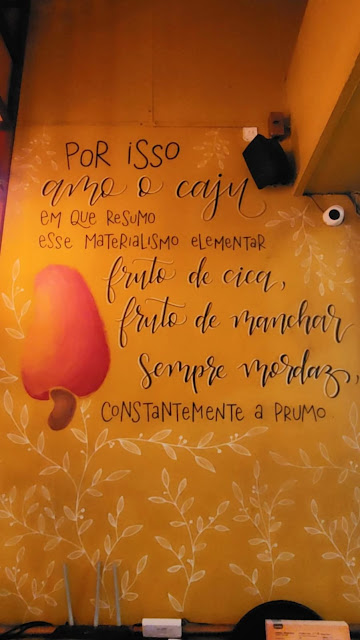 POR ISSO
amo o caju
EM QUE RESUMO
ESSE MATERIALISMO ELEMENTAR
fruto de cica,
fruto de manchar
sempre mordaz,
CONSTANTEMENTE A PRUMO.